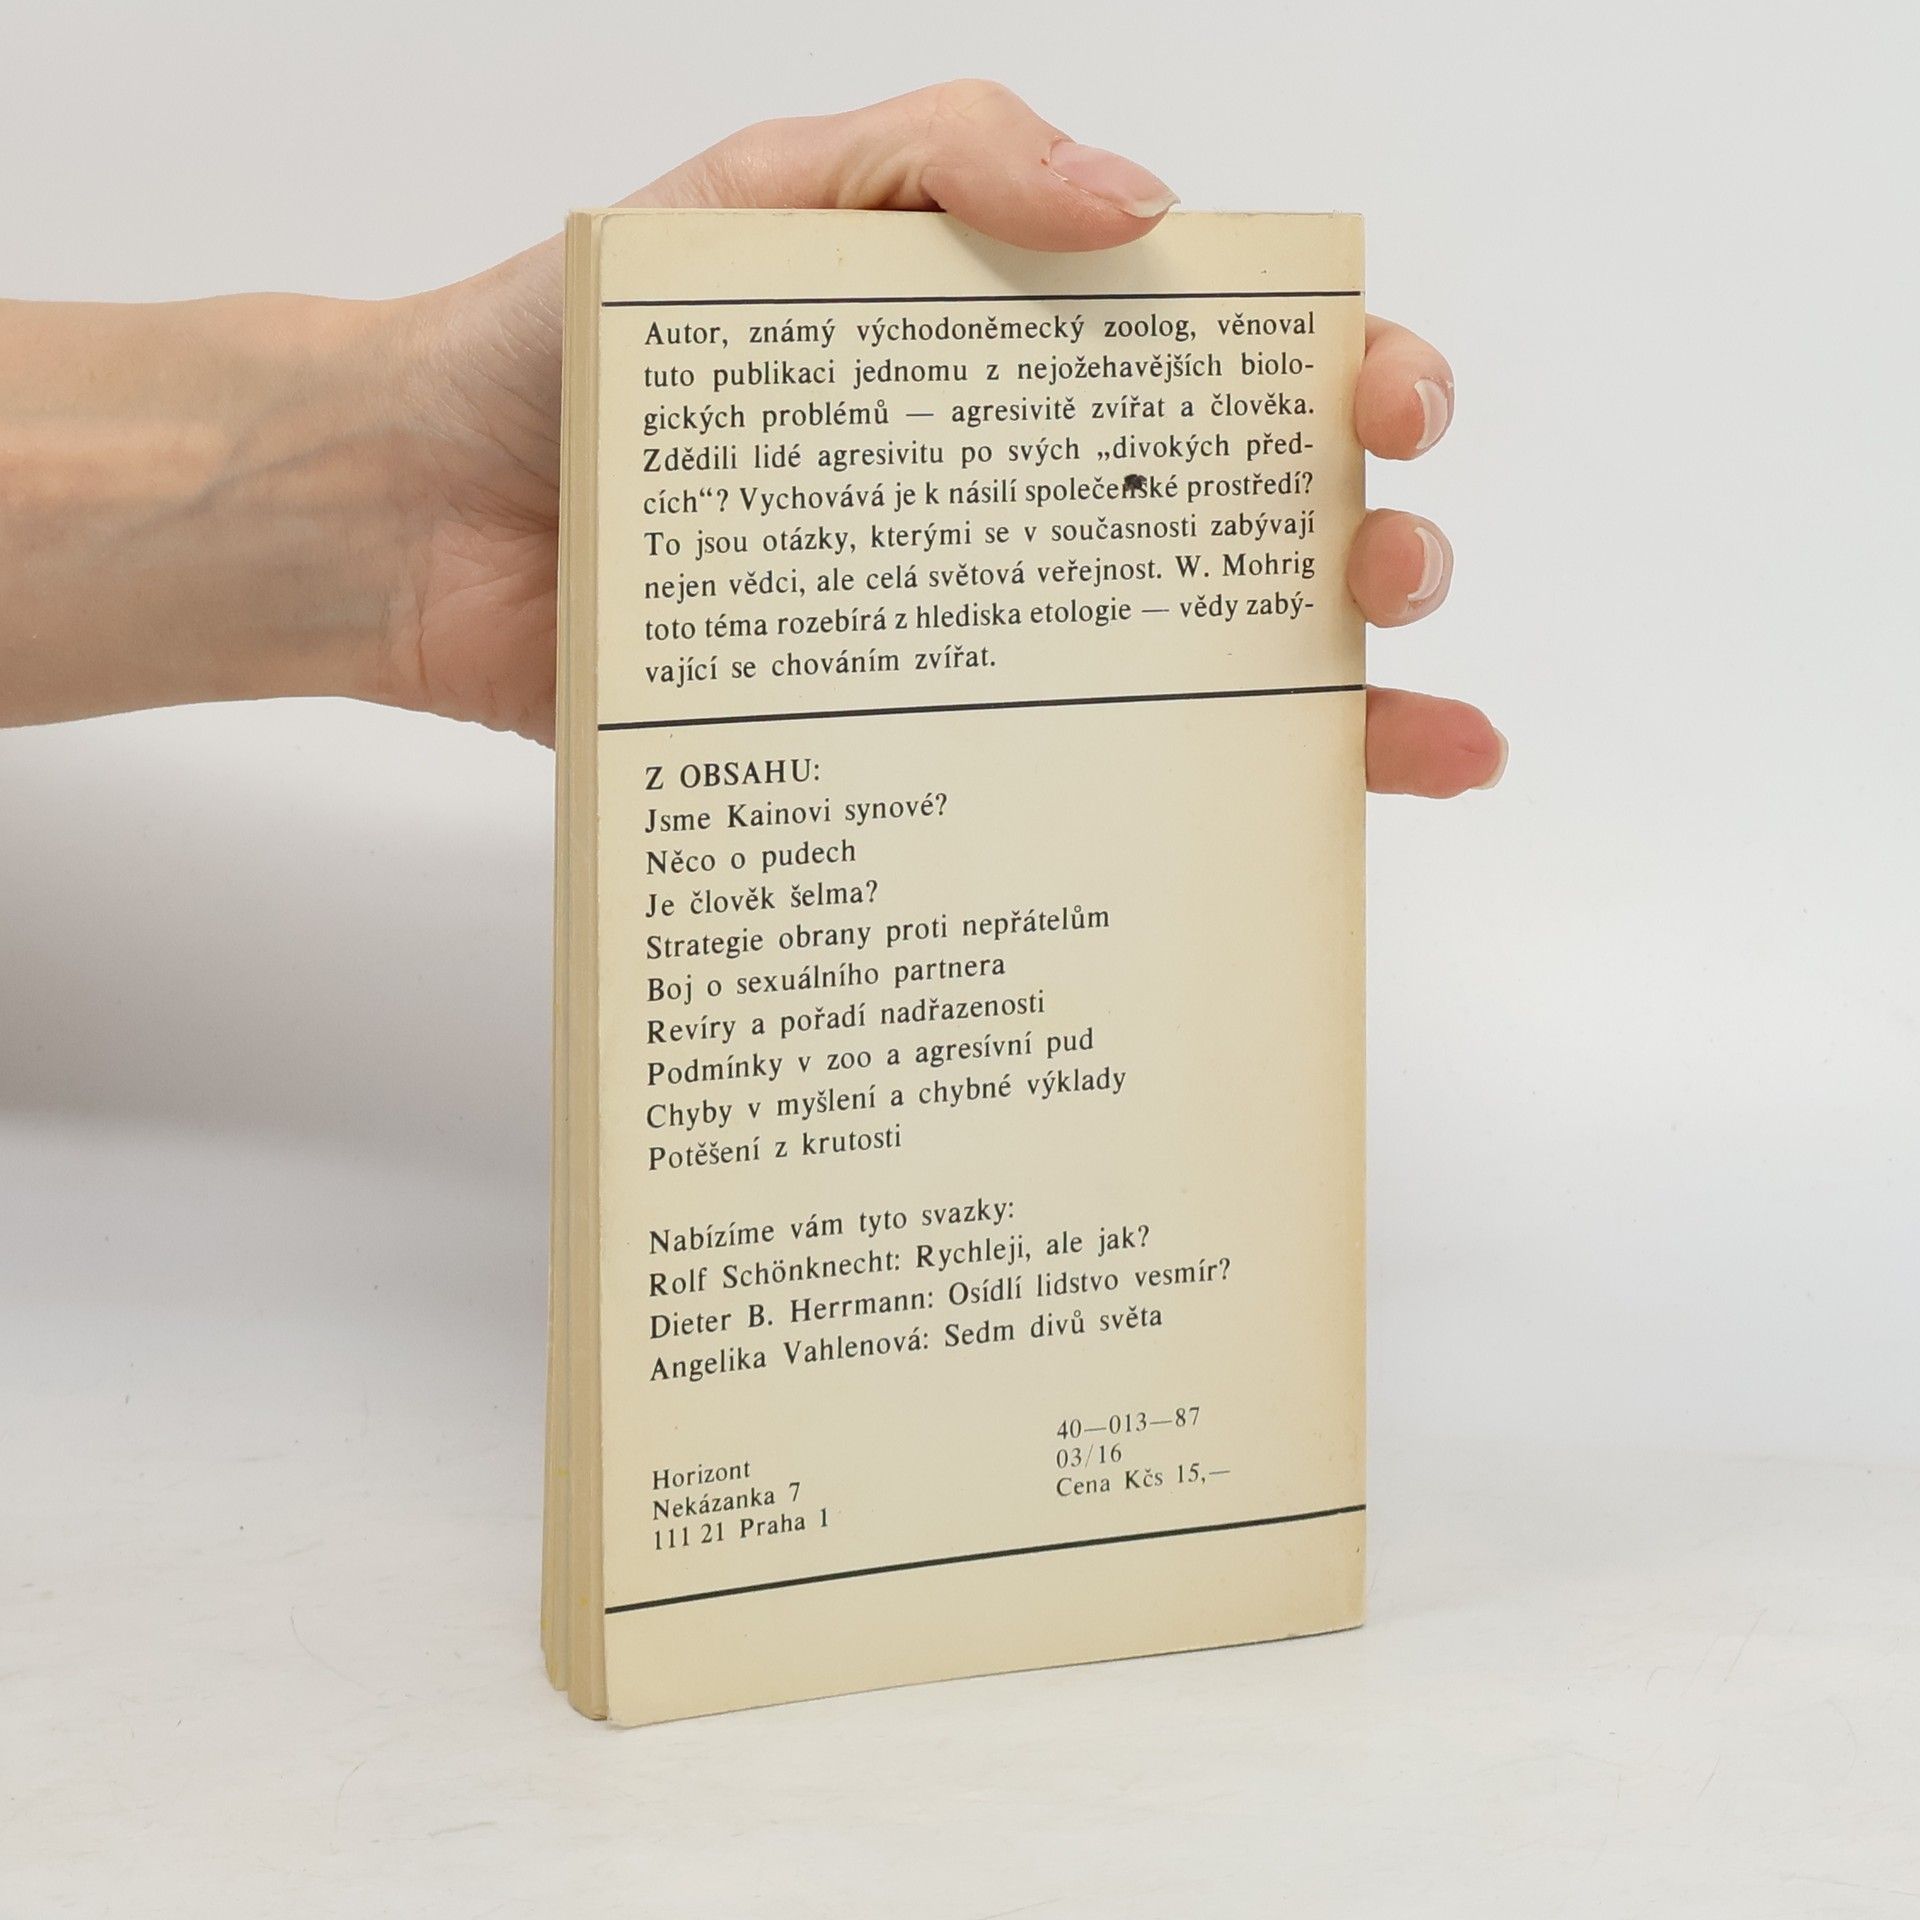 Autor, známý východoněmecký zoolog, věnoval
tuto publikaci jednomu z nejožehavějších biolo-
gických problémů — agresivitě zvířat a člověka.
Zdědili lidé agresivitu po svých „divokých před-
cích“? Vychovává je k násilí společenské prostředí?
To jsou otázky, kterými se v současnosti zabývají
nejen vědci, ale celá světová veřejnost. W. Mohrig
toto téma rozebírá z hlediska etologie — vědy zabý-
vající se chováním zvířat.
Z OBSAHU:
Jsme Kainovi synové?
Něco o pudech
Je člověk šelma?
Strategie obrany proti nepřátelům
Boj o sexuálního partnera
Revíry a pořadí nadřazenosti
Podmínky v zoo a agresívní pud
Chyby v myšlení a chybné výklady
Potěšení z krutosti
Nabízíme vám tyto svazky:
Rolf Schönknecht: Rychleji, ale jak?
Dieter B. Herrmann: Osídlí lidstvo vesmír?
Angelika Vahlenová: Sedm divů světa
Horizont
Nekázanka 7
111 21 Praha 1
40—013—87
03/16
Cena Kčs 15,—